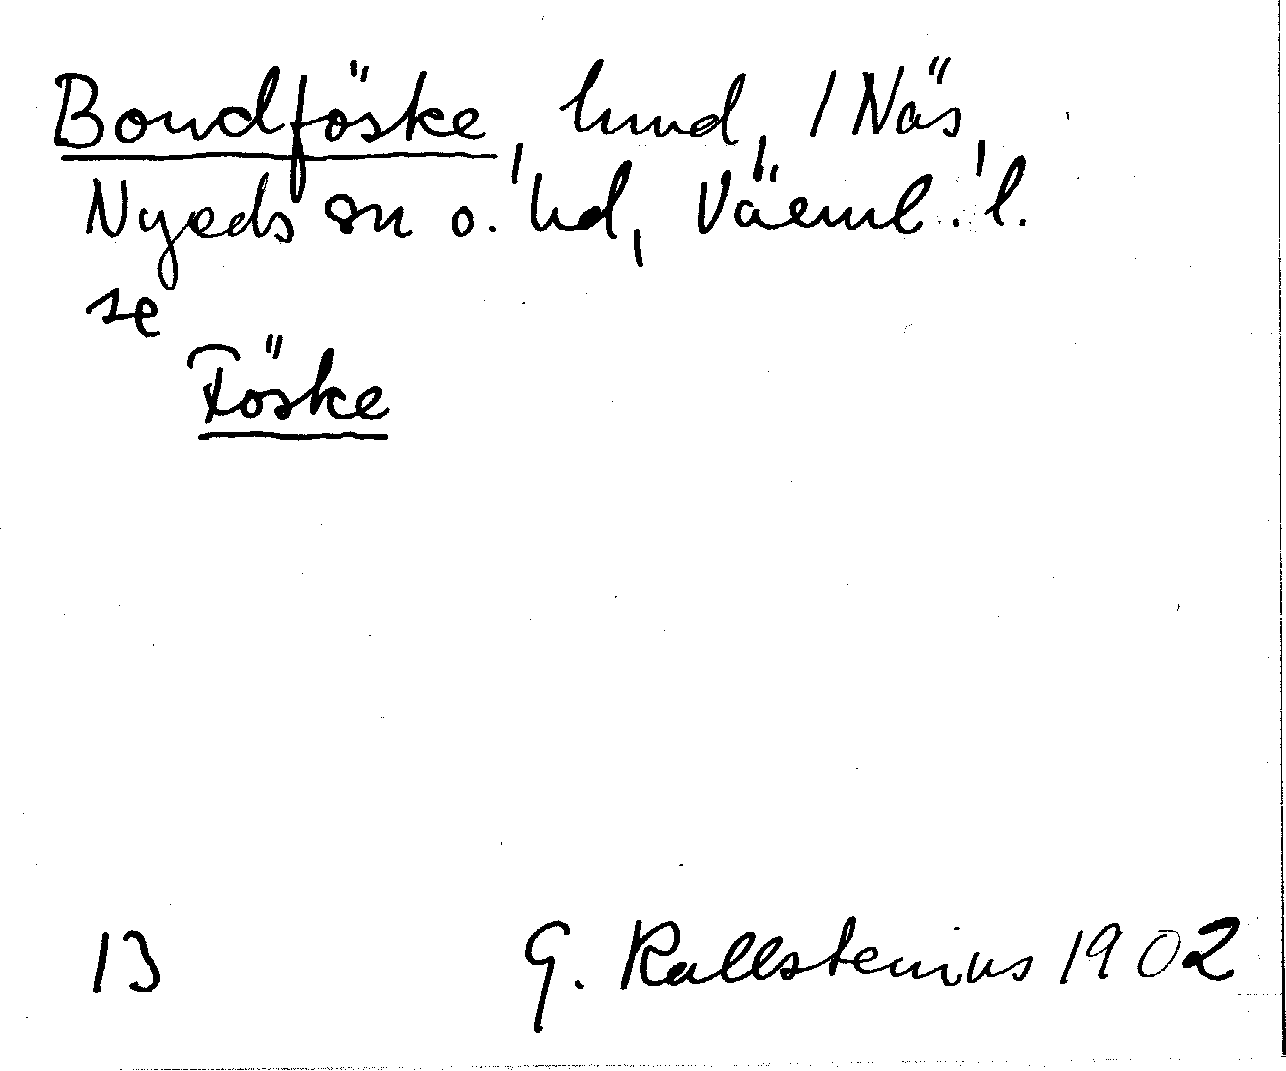 Bondföske, hmd, /Näs,
Nyeds sn o. hd, Värml. l.
se
Föske
13 G. Kallstenius 1902